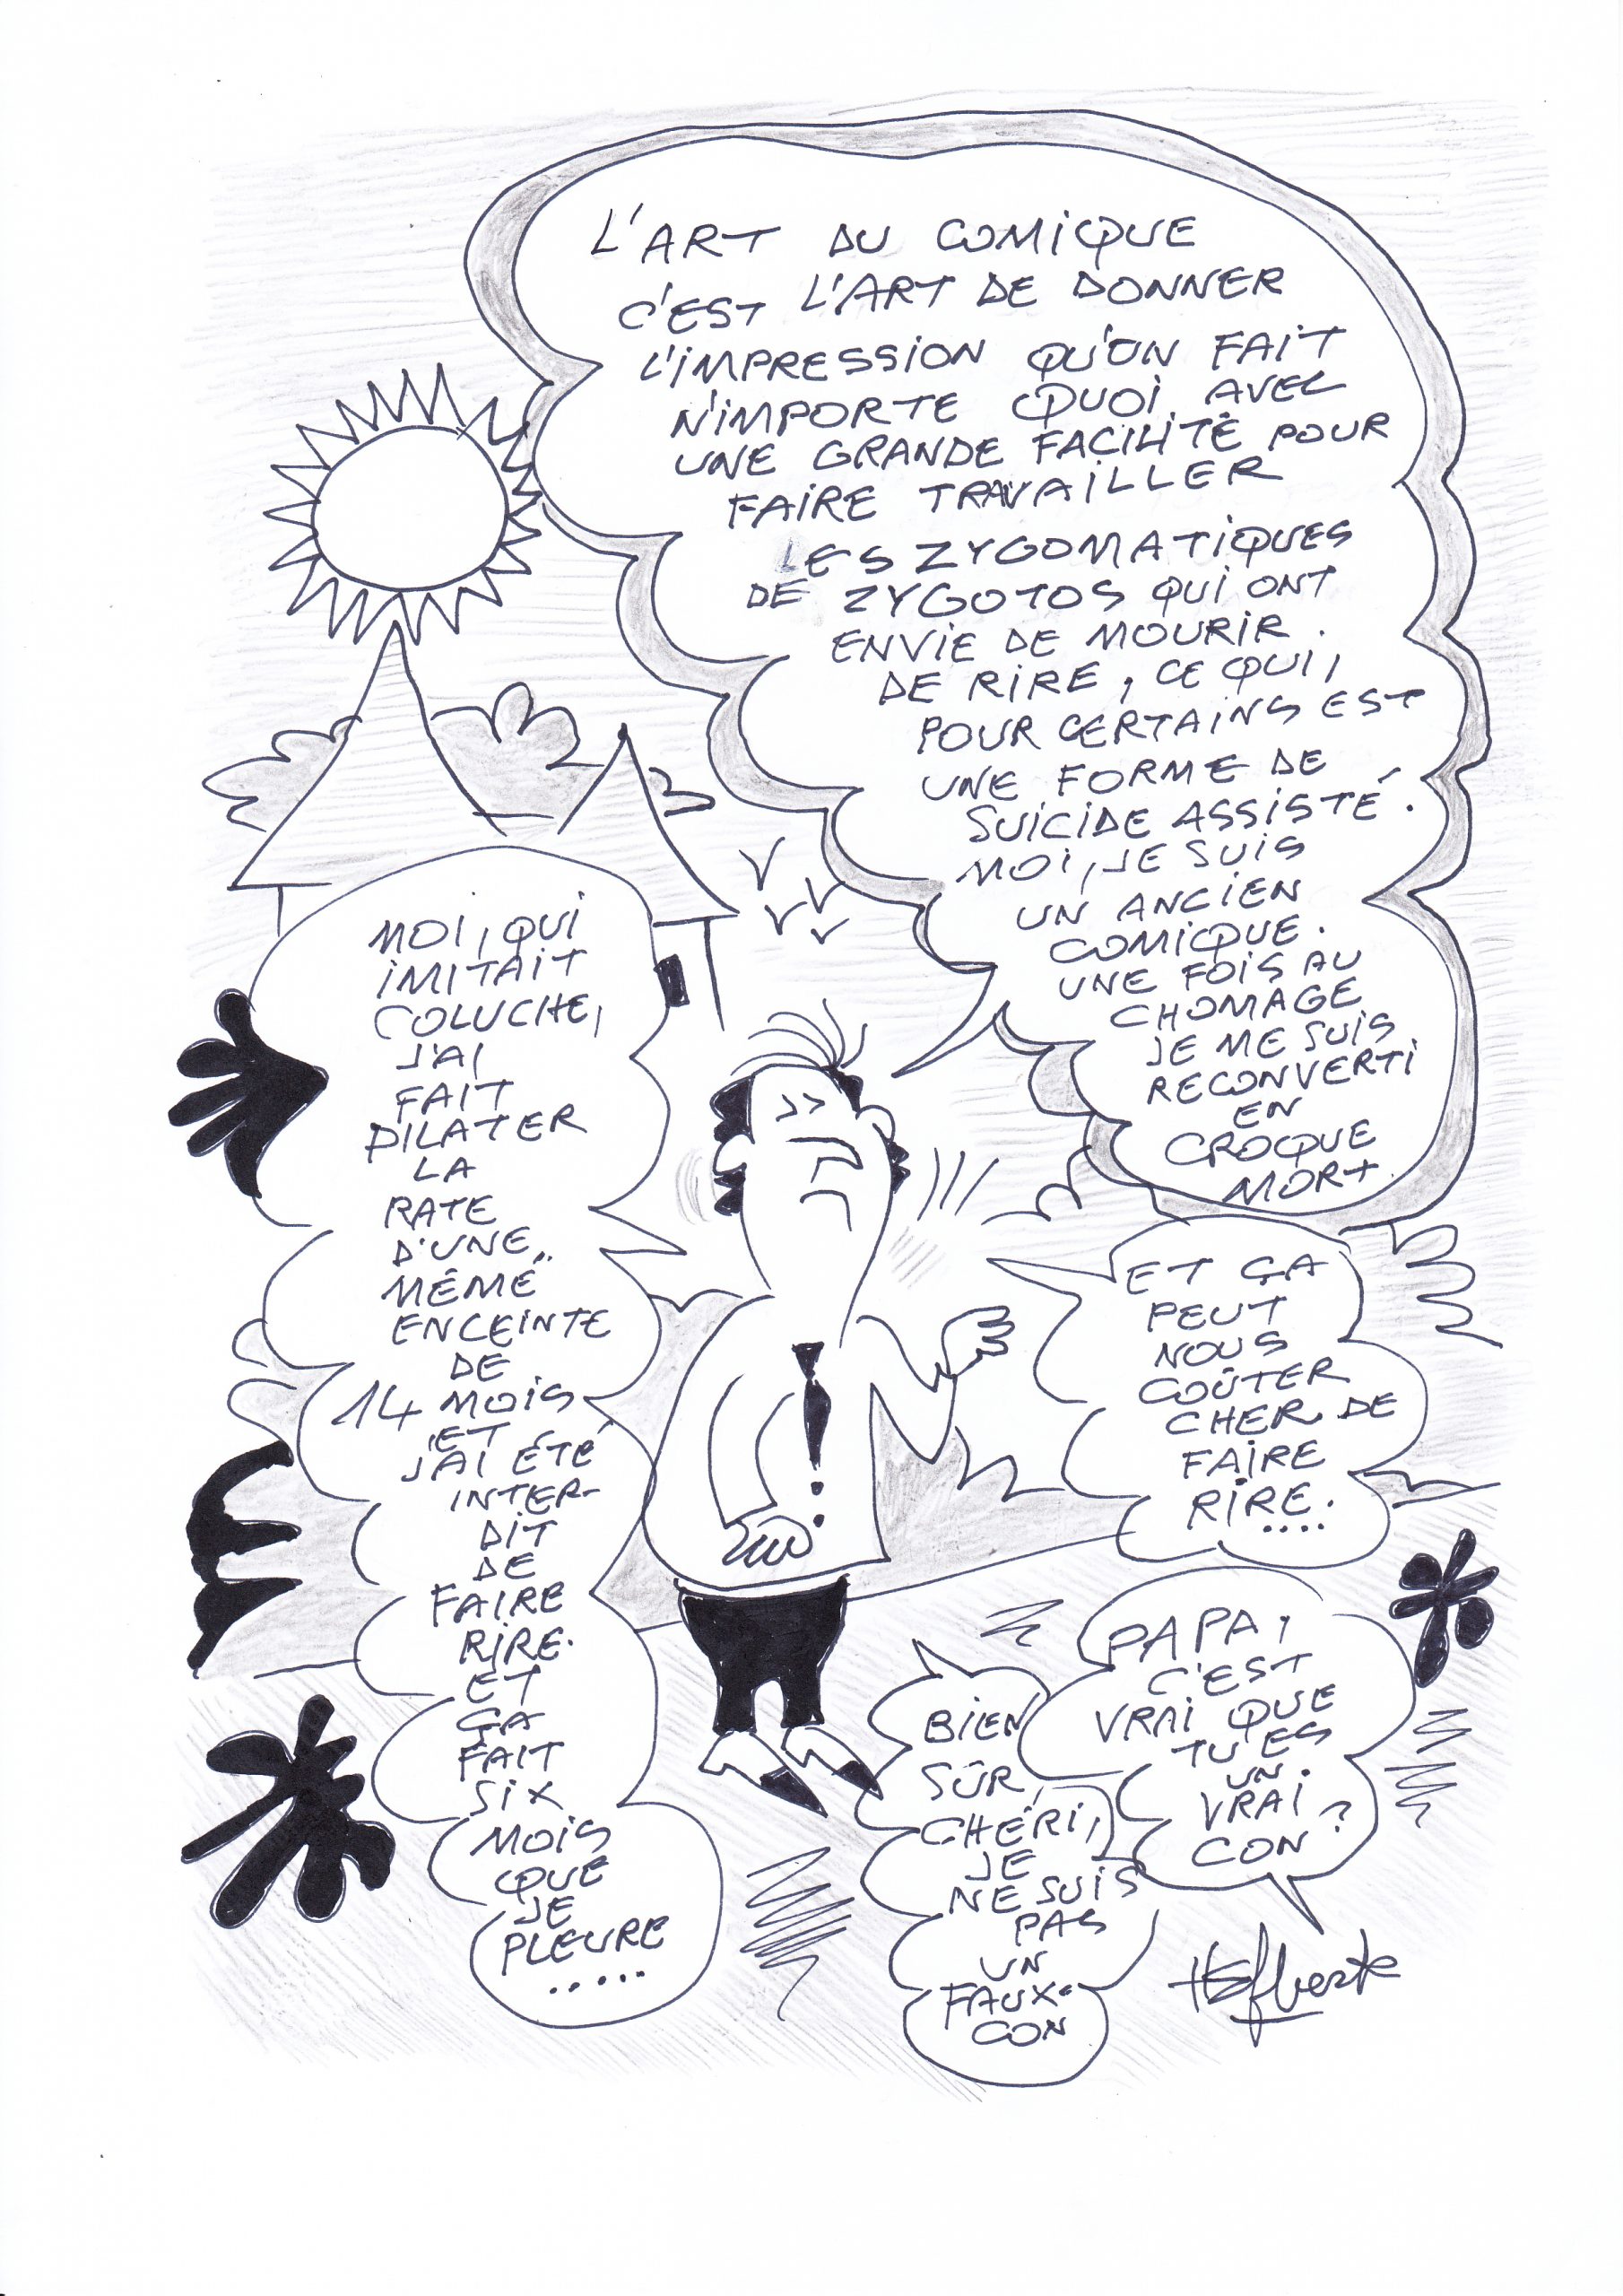 L'ART DU COMIQUE
C'EST L'ART DE DONNER
L'IMPRESSION QU'ON FAIT
N'IMPORTE QUOI, AVEC
UNE GRANDE FACILITÉ POUR
FAIRE TRAVAILLER
LES ZYGOMATIQUES
DE ZYGOTOS QUI ONT
ENVIE DE MOURIR.
DE RIRE, CE QUI,
POUR CERTAINS EST
UNE FORME DE
SUICIDE ASSISTÉ.
MOI, JE SUIS
UN ANCIEN
COMIQUE.
UNE FOIS AU
CHOMAGE
JE ME SUIS
RECONVERTI
EN
CROQUE
MORT.
MOI, QUI
IMITAIT
COLUCHE,
J'AI
FAIT
DILATER
LA
RATE
D'UNE
MÉMÉ
ENCEINTE
DE
14 MOIS
ET
J'AI ÉTÉ
INTER-
DIT
DE
FAIRE
RIRE.
ET
ÇA
FAIT
SIX
MOIS
QUE
JE
PLEURE
.....
ET ÇA
PEUT
NOUS
COÛTER
CHER DE
FAIRE
RIRE.
....
PAPA,
C'EST
VRAI QUE
TU ES
UN
VRAI
CON?
BIEN
SÛR,
CHÉRI,
JE
NE SUIS
PAS
UN
FAUX-
CON